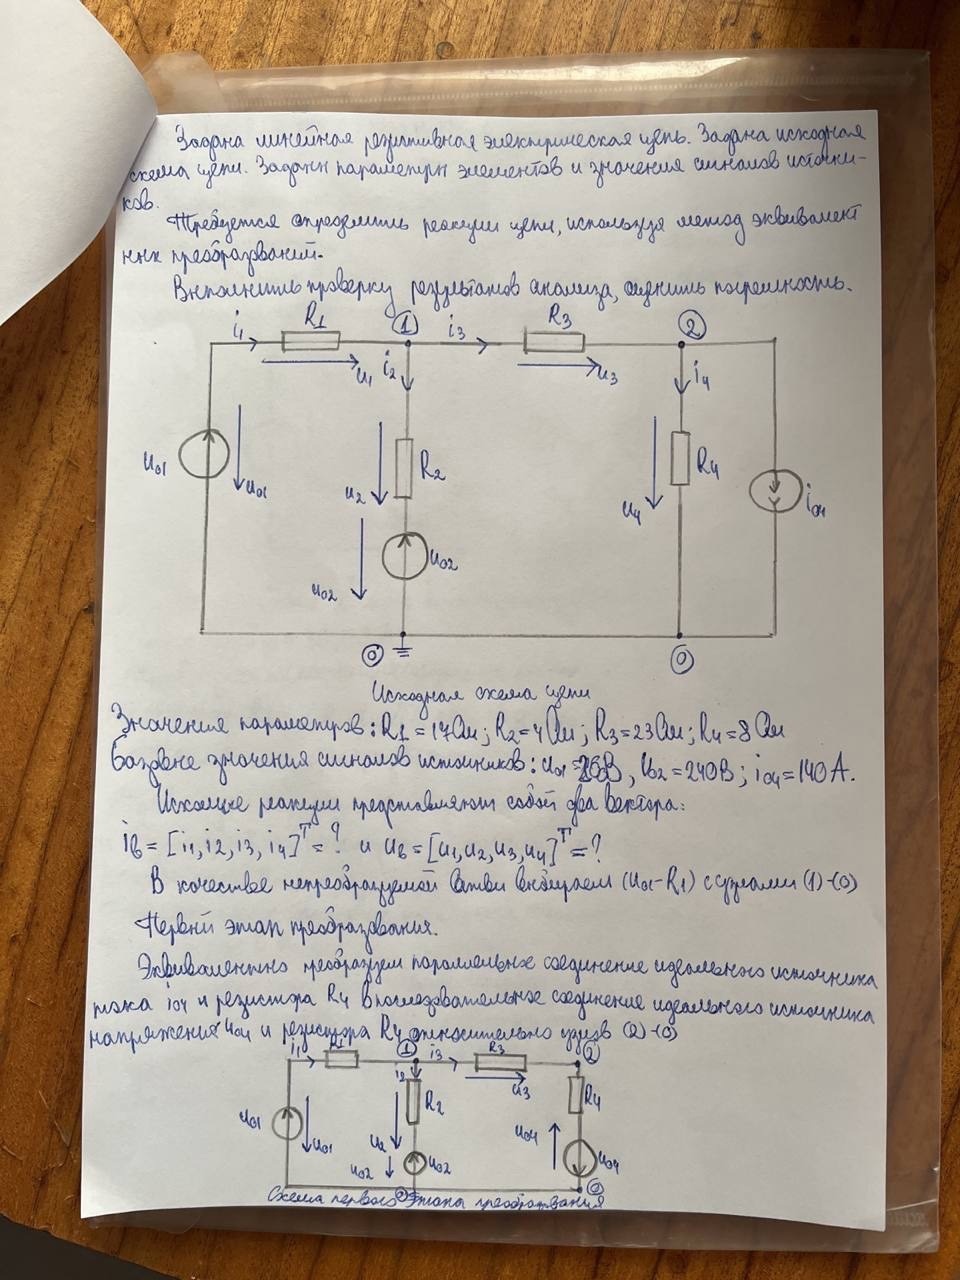 Задана линейная резистивная электрическая цепь. Задана исходная
схема цепи. Заданы параметры элементов и значения сигналов источни-
ков.
Требуется определить реакции цепи, используя метод эквивалент
ных преобразваний.
Выполнить проверку результатов анализа, оценить погрешность.
i1 R1 ① i3 R3 ②
u1 i2 u3 i4
u01 u01 u2 R2 u4 R4 i04
u02 u02
⓪ ⓪
Исходная схема цепи
Значения параметров: R1=17Ом; R2=4Ом; R3=23Ом; R4=8Ом
Базовые значения сигналов источников: u01= В, U02=240В; i04=140А.
Искомые реакции представляют собой два вектора:
iв=[i1,i2,i3,i4]ᵀ=? и uв=[u1,u2,u3,u4]ᵀ=?
В качестве непреобразуемой ветви выбираем (u01-R1) с узлами (1)-(0)
Первый этап преобразования.
Эквивалентно преобразуем параллельное соединение идеального источника
тока i04 и резистора R4 в последовательное соединение идеального источника
напряжения u04 и резистора R4 относительно узлов (2)-(0)
i1 R1 ① i3 R3 ②
i2 R2 u3 R4
u01 u01 u2 u04 u04
u02 u02
⓪
Схема первого этапа преобразования